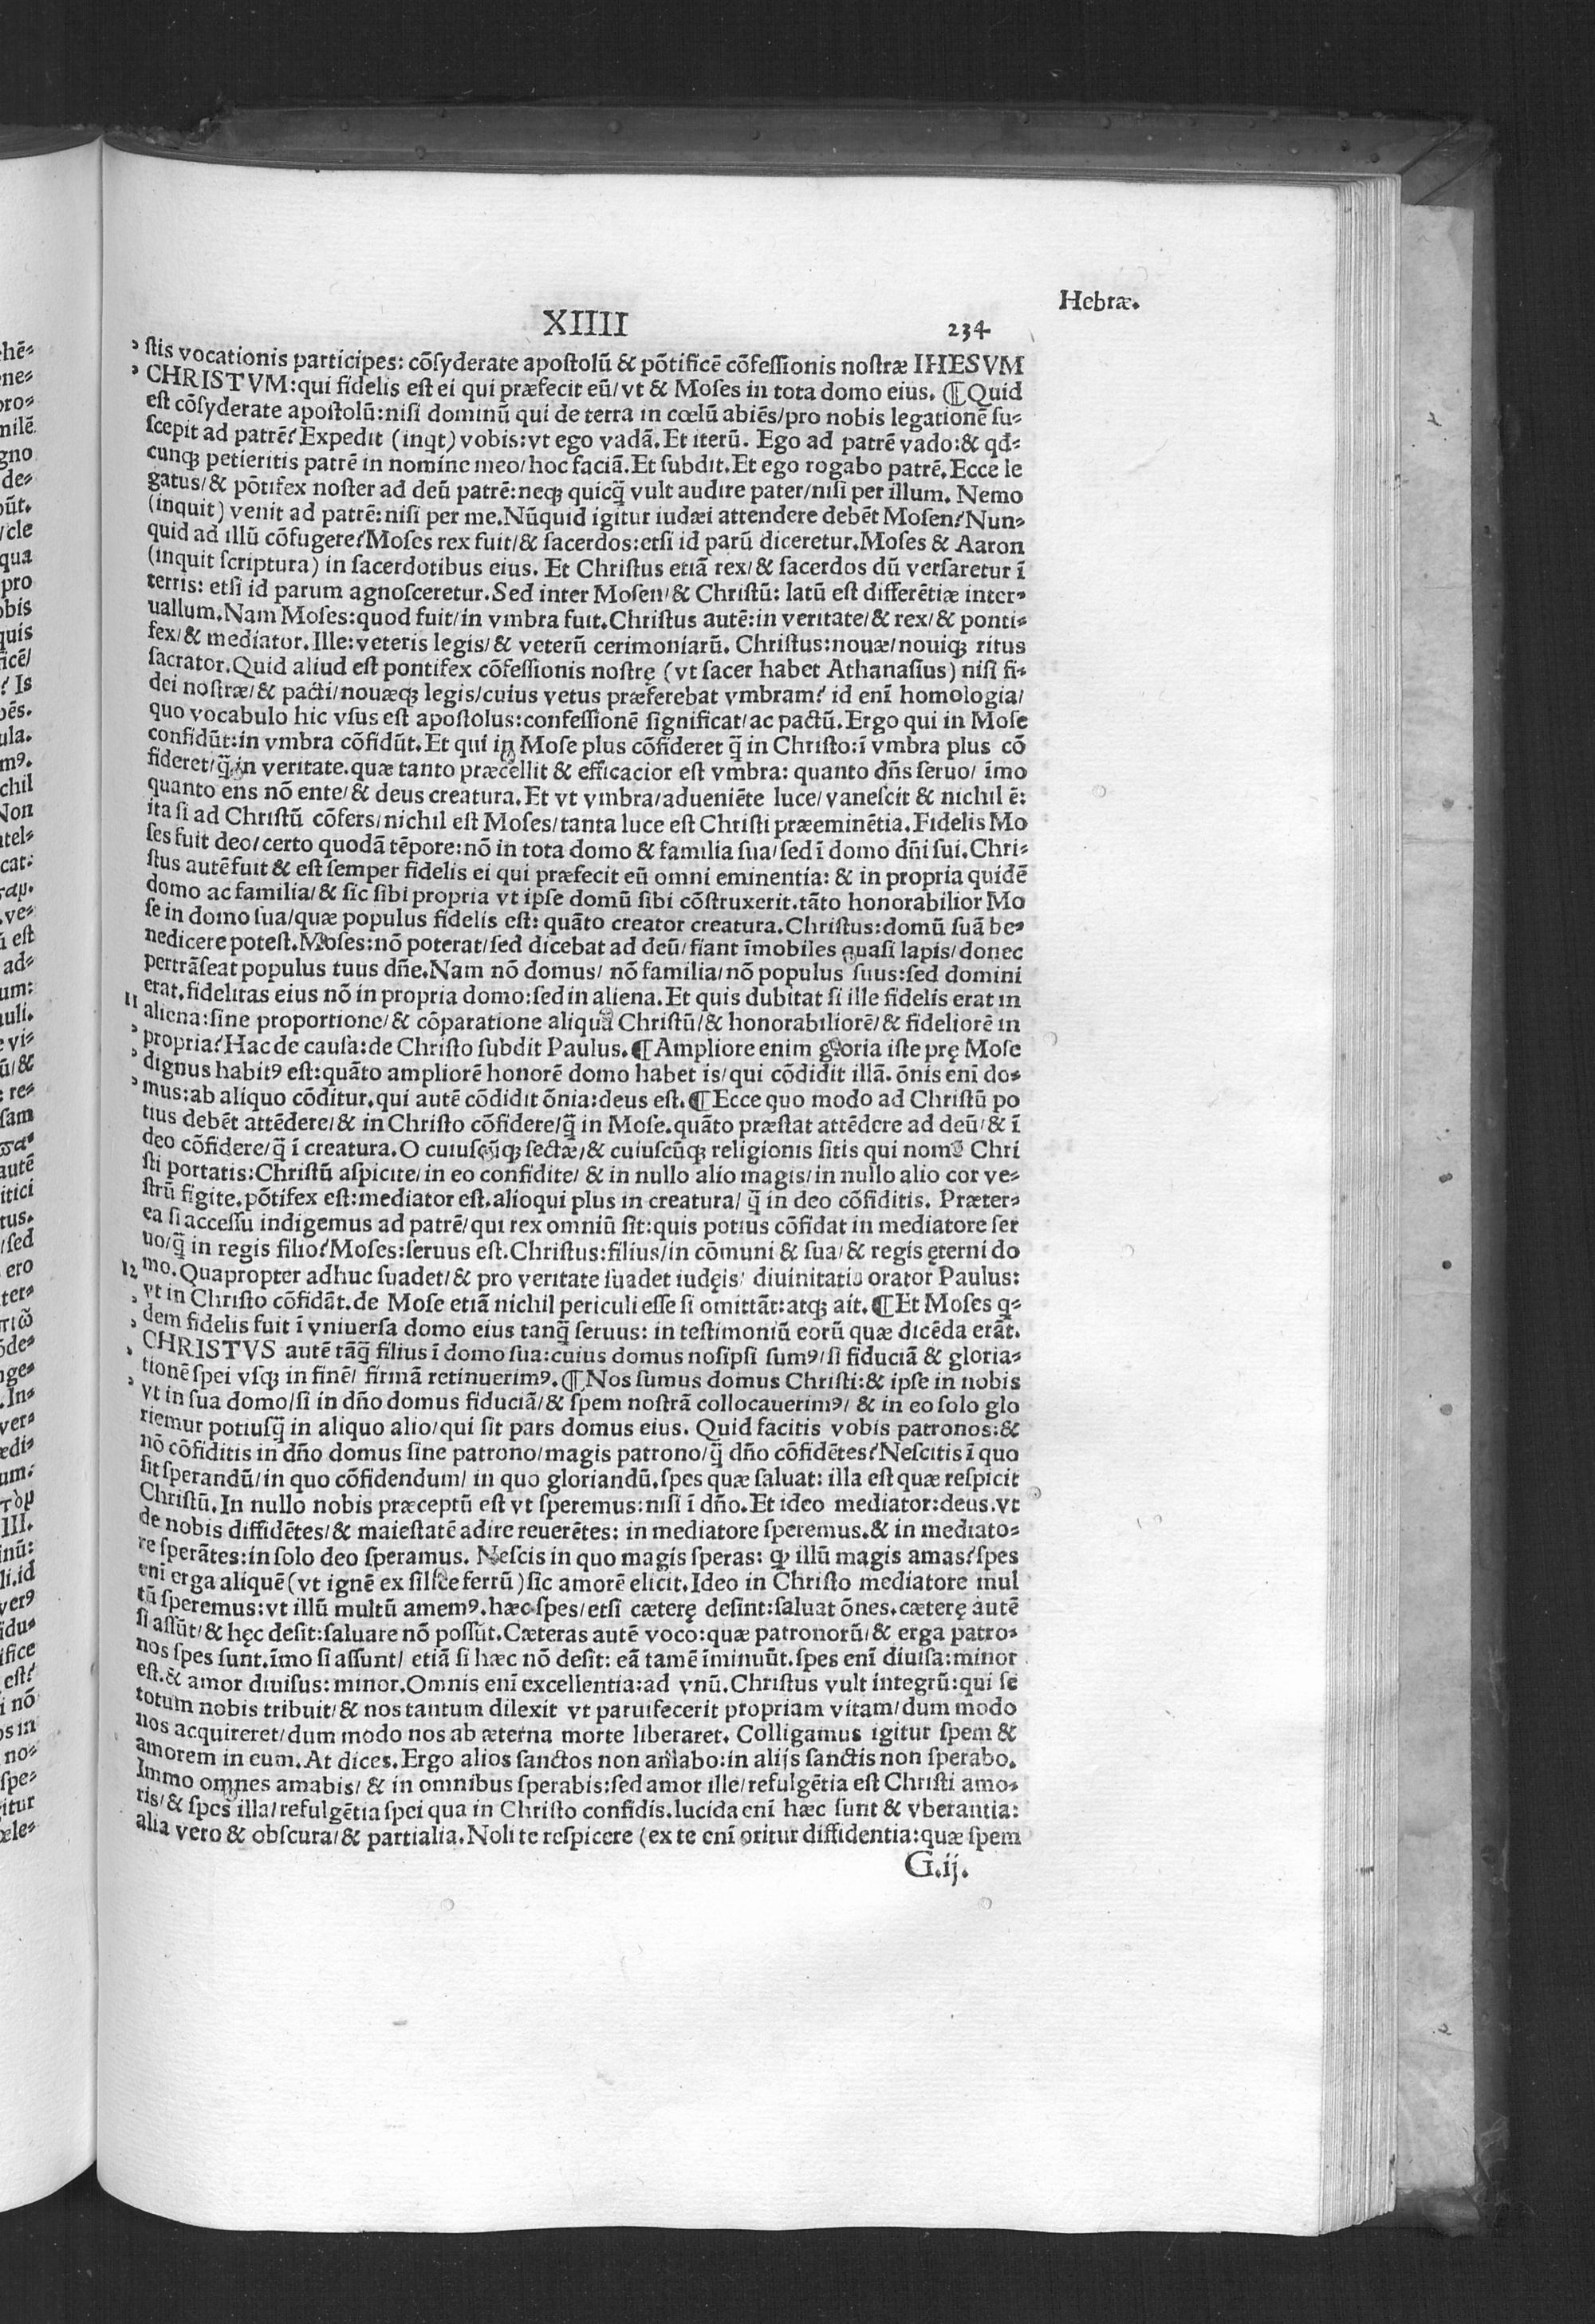 Hebræ.
XIIII
234
stis vocationis participes: cōsyderate apostolū & pōtificē cōfessionis nostræ IHESVM
CHRISTVM: qui fidelis est ei qui præfecit eū/ vt & Moses in tota domo eius. ¶ Quid
est cōsyderate apostolū: nisi dominū qui de terra in cœlū abiēs/ pro nobis legationē su-
scepit ad patrē? Expedit (inqt) vobis: vt ego vadā. Et iterū. Ego ad patrē vado: & qd-
cunqꝫ petieritis patrē in nomine meo/ hoc faciā. Et subdit. Et ego rogabo patrē. Ecce le
gatus/ & pōtifex noster ad deū patrē: neqꝫ quicq̄ vult audire pater/ nisi per illum. Nemo
(inquit) venit ad patrē: nisi per me. Nūquid igitur iudæi attendere debēt Mosen? Nun-
quid ad illū cōfugere? Moses rex fuit/ & sacerdos: etsi id parū diceretur. Moses & Aaron
(inquit scriptura) in sacerdotibus eius. Et Christus etiā rex/ & sacerdos dū versaretur ī
terris: etsi id parum agnosceretur. Sed inter Mosen/ & Christū: latū est differētiæ inter-
uallum. Nam Moses: quod fuit/ in vmbra fuit. Christus autē: in veritate/ & rex/ & ponti-
fex/ & mediator. Ille: veteris legis/ & veterū cerimoniarū. Christus: nouæ/ nouiqꝫ ritus
sacrator. Quid aliud est pontifex cōfessionis nostrę (vt sacer habet Athanasius) nisi fi-
dei nostræ/ & pacti/ nouæqꝫ legis/ cuius vetus præferebat vmbram? id enī homologia/
quo vocabulo hic vsus est apostolus: confessionē significat/ ac pactū. Ergo qui in Mose
confidūt: in vmbra cōfidūt. Et qui in Mose plus cōfideret q̄ in Christo: ī vmbra plus cō
fideret/ q̄ in veritate. quæ tanto præcellit & efficacior est vmbra: quanto dn̄s seruo/ īmo
quanto ens nō ente/ & deus creatura. Et vt vmbra/ adueniēte luce/ vanescit & nichil ē:
ita si ad Christū cōfers/ nichil est Moses/ tanta luce est Christi præeminētia. Fidelis Mo
ses fuit deo/ certo quodā tēpore: nō in tota domo & familia sua/ sed ī domo dn̄i sui. Chri-
stus autē fuit & est semper fidelis ei qui præfecit eū omni eminentia: & in propria quidē
domo ac familia/ & sic sibi propria vt ipse domū sibi cōstruxerit. tāto honorabilior Mo
se in domo sua/ quæ populus fidelis est: quāto creator creatura. Christus: domū suā be-
nedicere potest. Moses: nō poterat/ sed dicebat ad deū/ fiant īmobiles quasi lapis/ donec
pertrāseat populus tuus dn̄e. Nam nō domus/ nō familia/ nō populus suus: sed domini
erat. fidelitas eius nō in propria domo: sed in aliena. Et quis dubitat si ille fidelis erat in
11 aliena: sine proportione/ & cōparatione aliqua Christū/ & honorabiliorē/ & fideliorē in
propria? Hac de causa: de Christo subdit Paulus. ¶ Ampliore enim gloria iste prę Mose
dignus habitꝰ est: quāto ampliorē honorē domo habet is/ qui cōdidit illā. ōnis enī do-
mus: ab aliquo cōditur. qui autē cōdidit ōnia: deus est. ¶ Ecce quo modo ad Christū po
tius debēt attēdere/ & in Christo cōfidere/ q̄ in Mose. quāto præstat attēdere ad deū/ & ī
deo cōfidere/ q̄ ī creatura. O cuiuscūqꝫ sectæ/ & cuiuscūqꝫ religionis sitis qui nomē Chri
sti portatis: Christū aspicite/ in eo confidite/ & in nullo alio magis/ in nullo alio cor ve-
strū figite. pōtifex est: mediator est. alioqui plus in creatura/ q̄ in deo cōfiditis. Præter-
ea si accessu indigemus ad patrē/ qui rex omniū sit: quis potius cōfidat in mediatore ser
uo/ q̄ in regis filio? Moses: seruus est. Christus: filius/ in cōmuni & sua/ & regis ęterni do
12 mo. Quapropter adhuc suadet/ & pro veritate suadet iudęis/ diuinitatis orator Paulus:
vt in Christo cōfidāt. de Mose etiā nichil periculi esse si omittāt: atqꝫ ait. ¶ Et Moses q-
dem fidelis fuit ī vniuersa domo eius tanq̄ seruus: in testimoniū eorū quæ dicēda erāt.
CHRISTVS autē tāq̄ filius ī domo sua: cuius domus nosipsi sumꝰ/ si fiduciā & gloria-
tionē spei vsqꝫ in finē/ firmā retinuerimꝰ. ¶ Nos sumus domus Christi: & ipse in nobis
vt in sua domo/ si in dn̄o domus fiduciā/ & spem nostrā collocauerimꝰ/ & in eo solo glo
riemur potiusq̄ in aliquo alio/ qui sit pars domus eius. Quid facitis vobis patronos: &
nō cōfiditis in dn̄o domus sine patrono/ magis patrono/ q̄ dn̄o cōfidētes? Nescitis ī quo
sit sperandū/ in quo cōfidendum/ in quo gloriandū. spes quæ saluat: illa est quæ respicit
Christū. In nullo nobis præceptū est vt speremus: nisi ī dn̄o. Et ideo mediator: deus. vt
de nobis diffidētes/ & maiestatē adire reuerētes: in mediatore speremus. & in mediato-
re sperātes: in solo deo speramus. Nescis in quo magis speras: ꝙ illū magis amas? spes
enī erga aliquē (vt ignē ex silice ferrū) sic amorē elicit. Ideo in Christo mediatore mul
tū speremus: vt illū multū amemꝰ. hæc spes/ etsi cæterę desint: saluat ōnes. cæterę autē
si assūt/ & hęc desit: saluare nō possūt. Cæteras autē voco: quæ patronorū/ & erga patro-
nos spes sunt. īmo si assunt/ etiā si hæc nō desit: eā tamē īminuūt. spes enī diuisa: minor
est. & amor diuisus: minor. Omnis enī excellentia: ad vnū. Christus vult integrū: qui se
totum nobis tribuit/ & nos tantum dilexit vt paruifecerit propriam vitam/ dum modo
nos acquireret/ dum modo nos ab æterna morte liberaret. Colligamus igitur spem &
amorem in eum. At dices. Ergo alios sanctos non amabo: in alijs sanctis non sperabo.
Immo omnes amabis/ & in omnibus sperabis: sed amor ille/ refulgētia est Christi amo-
ris/ & spes illa/ refulgētia spei qua in Christo confidis. lucida enī hæc sunt & vberantia:
alia vero & obscura/ & partialia. Noli te respicere (ex te enī oritur diffidentia: quæ spem
G.ij.